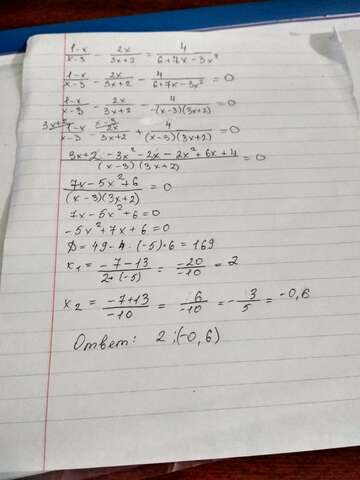 (1-x)/(x-3) - 2x/(3x+2) = 4/(6+7x-3x²)
(1-x)/(x-3) - 2x/(3x+2) - 4/(6+7x-3x²) = 0
(1-x)/(x-3) - 2x/(3x+2) - 4/(-(x-3)(3x+2)) = 0
3x+2 (1-x)/(x-3) - x-3 2x/(3x+2) + 4/((x-3)(3x+2)) = 0
(3x+2-3x²-2x-2x²+6x+4)/((x-3)(3x+2)) = 0
(7x-5x²+6)/((x-3)(3x+2)) = 0
7x-5x²+6=0
-5x²+7x+6=0
D=49-4·(-5)·6=169
x₁ = (-7-13)/(2·(-5)) = (-20)/(-10) = 2
x₂ = (-7+13)/(-10) = 6/(-10) = -3/5 = -0,6
Ответ: 2;(-0,6)